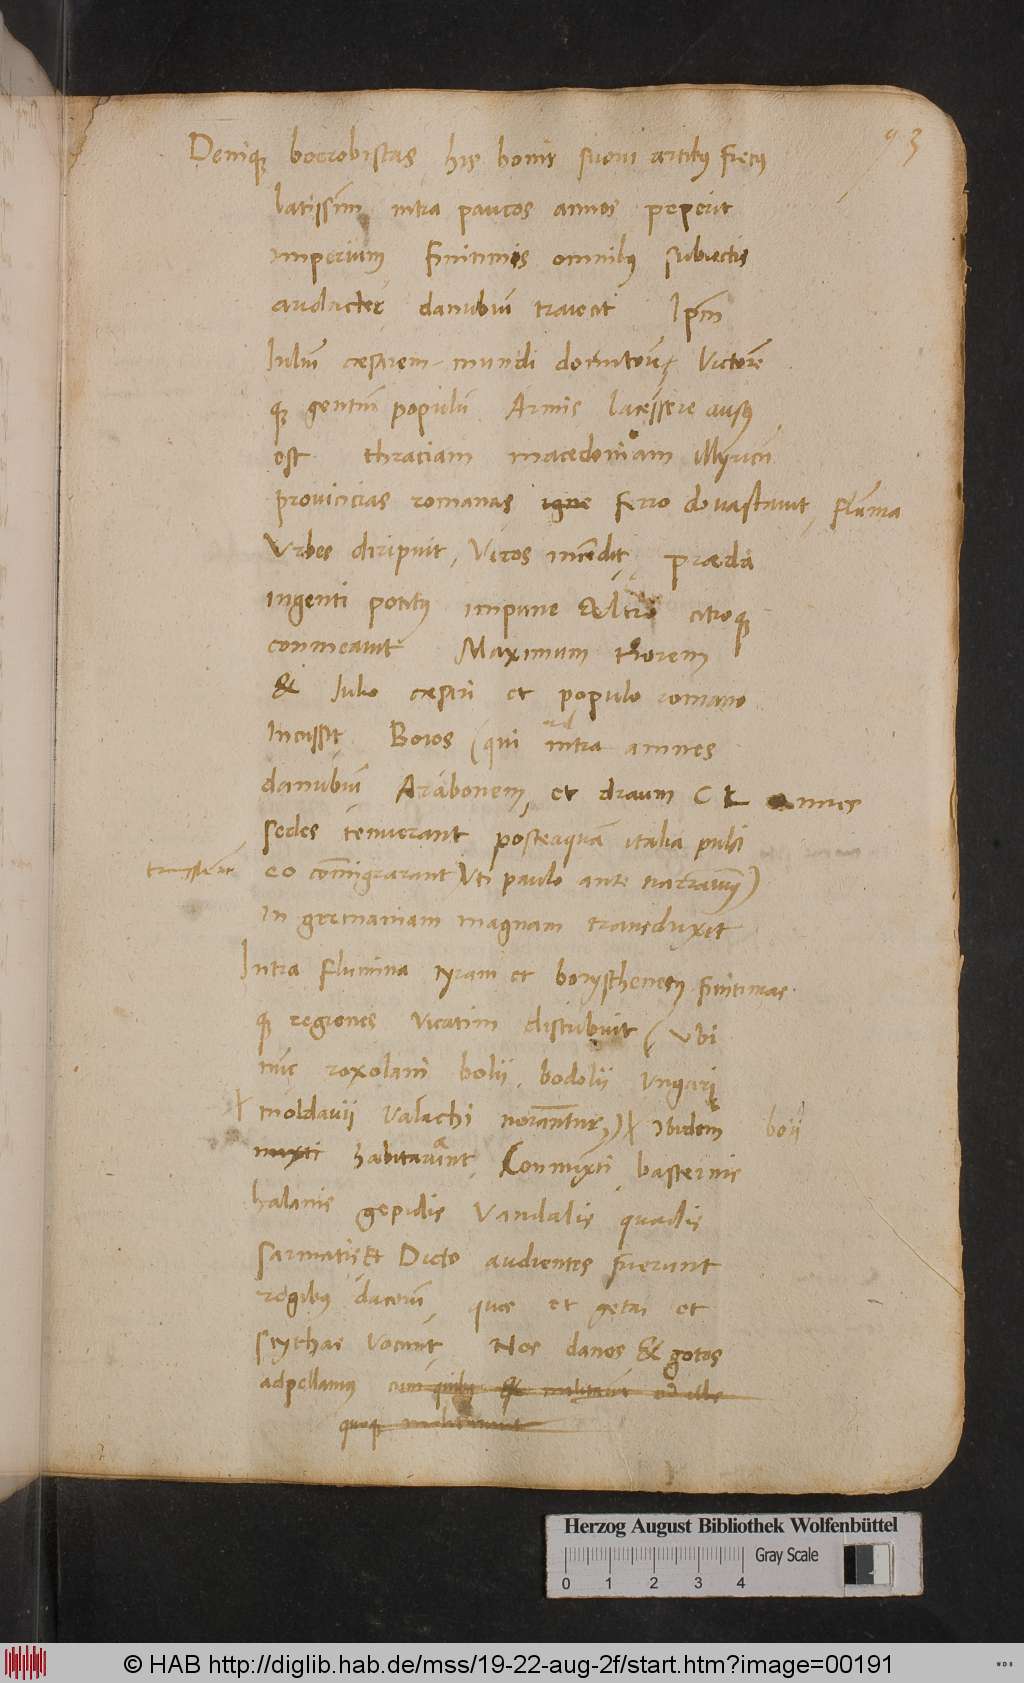 93
Deniqꝫ boerobistas his bonis suorum artibꝰ fretꝰ
latissim̄ intra paucos annos peperit
imperium finitimis omnibꝰ subiectis
audacter danubiū traiecit Ip̄m
Iuliū cæsarem mundi domitorē, Victorē
qꝫ gentiū populū Armis lacessere ausꝰ
est thraciam macedoniam illyricū
provincias romanas igne ferro devastavit, plurīa
Urbes diripuit, Viros incēdit, præda
ingenti potitꝰ impune &ultro citroqꝫ
conmeavit Maximum terrorem
& Iulio cæsari et populo romano
Incussit, Boios (qui intra amnes
danubiū Arabonem, et draum CL annos
sedes tenuerant posteaquā italia pulsi
eo com̄igrarant Uti paulo ante narravimꝰ)
In germaniam magnam transduxit
Intra flumina tyram et borysthenem, finitimas
qꝫ regiones vicatim distribuit (Ubi
nūc roxolani bolii, bodolii Ungari
moldavii valachi vocantur,) ibidem boii
mixti habitarunt, Conmixti, basternis
halanis gepidis Vandalis quadis
sarmatis Et Dicto audientes fuerunt
regibꝰ dacorū, quos et getas et
scythas vocant, Nos danos & gotos
adpellamꝰ cum quibꝰ & militavit
quoqꝫ
Herzog August Bibliothek Wolfenbüttel
Gray Scale
0 1 2 3 4
© HAB http://diglib.hab.de/mss/19-22-aug-2f/start.htm?image=00191